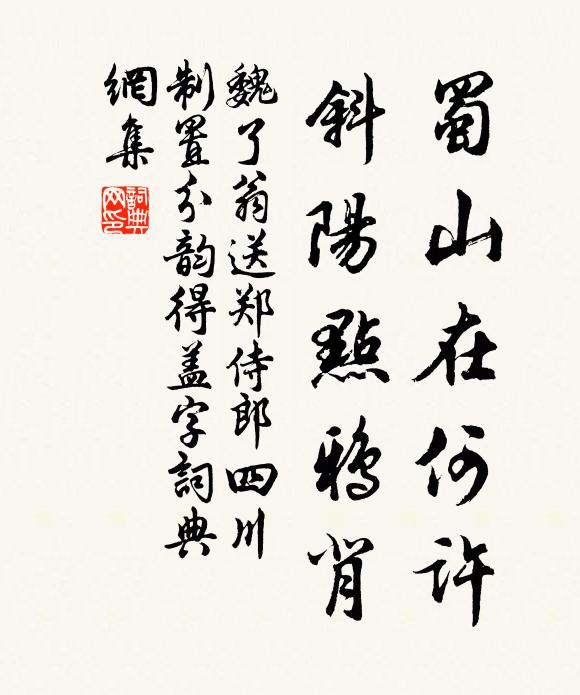 蜀山在何許
斜陽點鴉背
魏了翁送郑侍郎四川
制置分韵得盖字詞典
網集
詞典网印